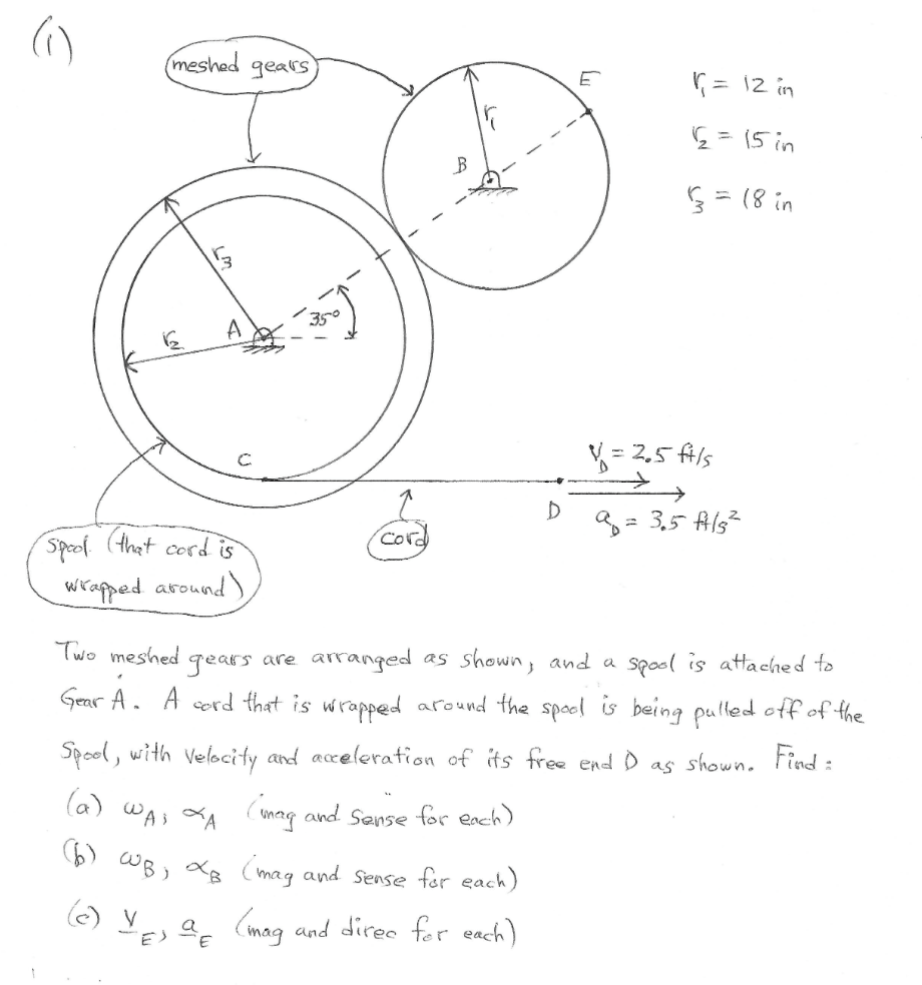 (i)
meshed gears
E
r₁ = 12 in
r₁
r₂ = 15 in
B
r₃ = 18 in
r₃
A
35°
r₂
C
V_D = 2.5 ft/s
D
a_D = 3.5 ft/s²
cord
Spool (that cord is
wrapped around)
Two meshed gears are arranged as shown, and a spool is attached to
Gear A. A cord that is wrapped around the spool is being pulled off of the
Spool, with velocity and acceleration of its free end D as shown. Find:
(a) ω_A, α_A (mag and sense for each)
(b) ω_B, α_B (mag and sense for each)
(c) V_E, a_E (mag and direc for each)